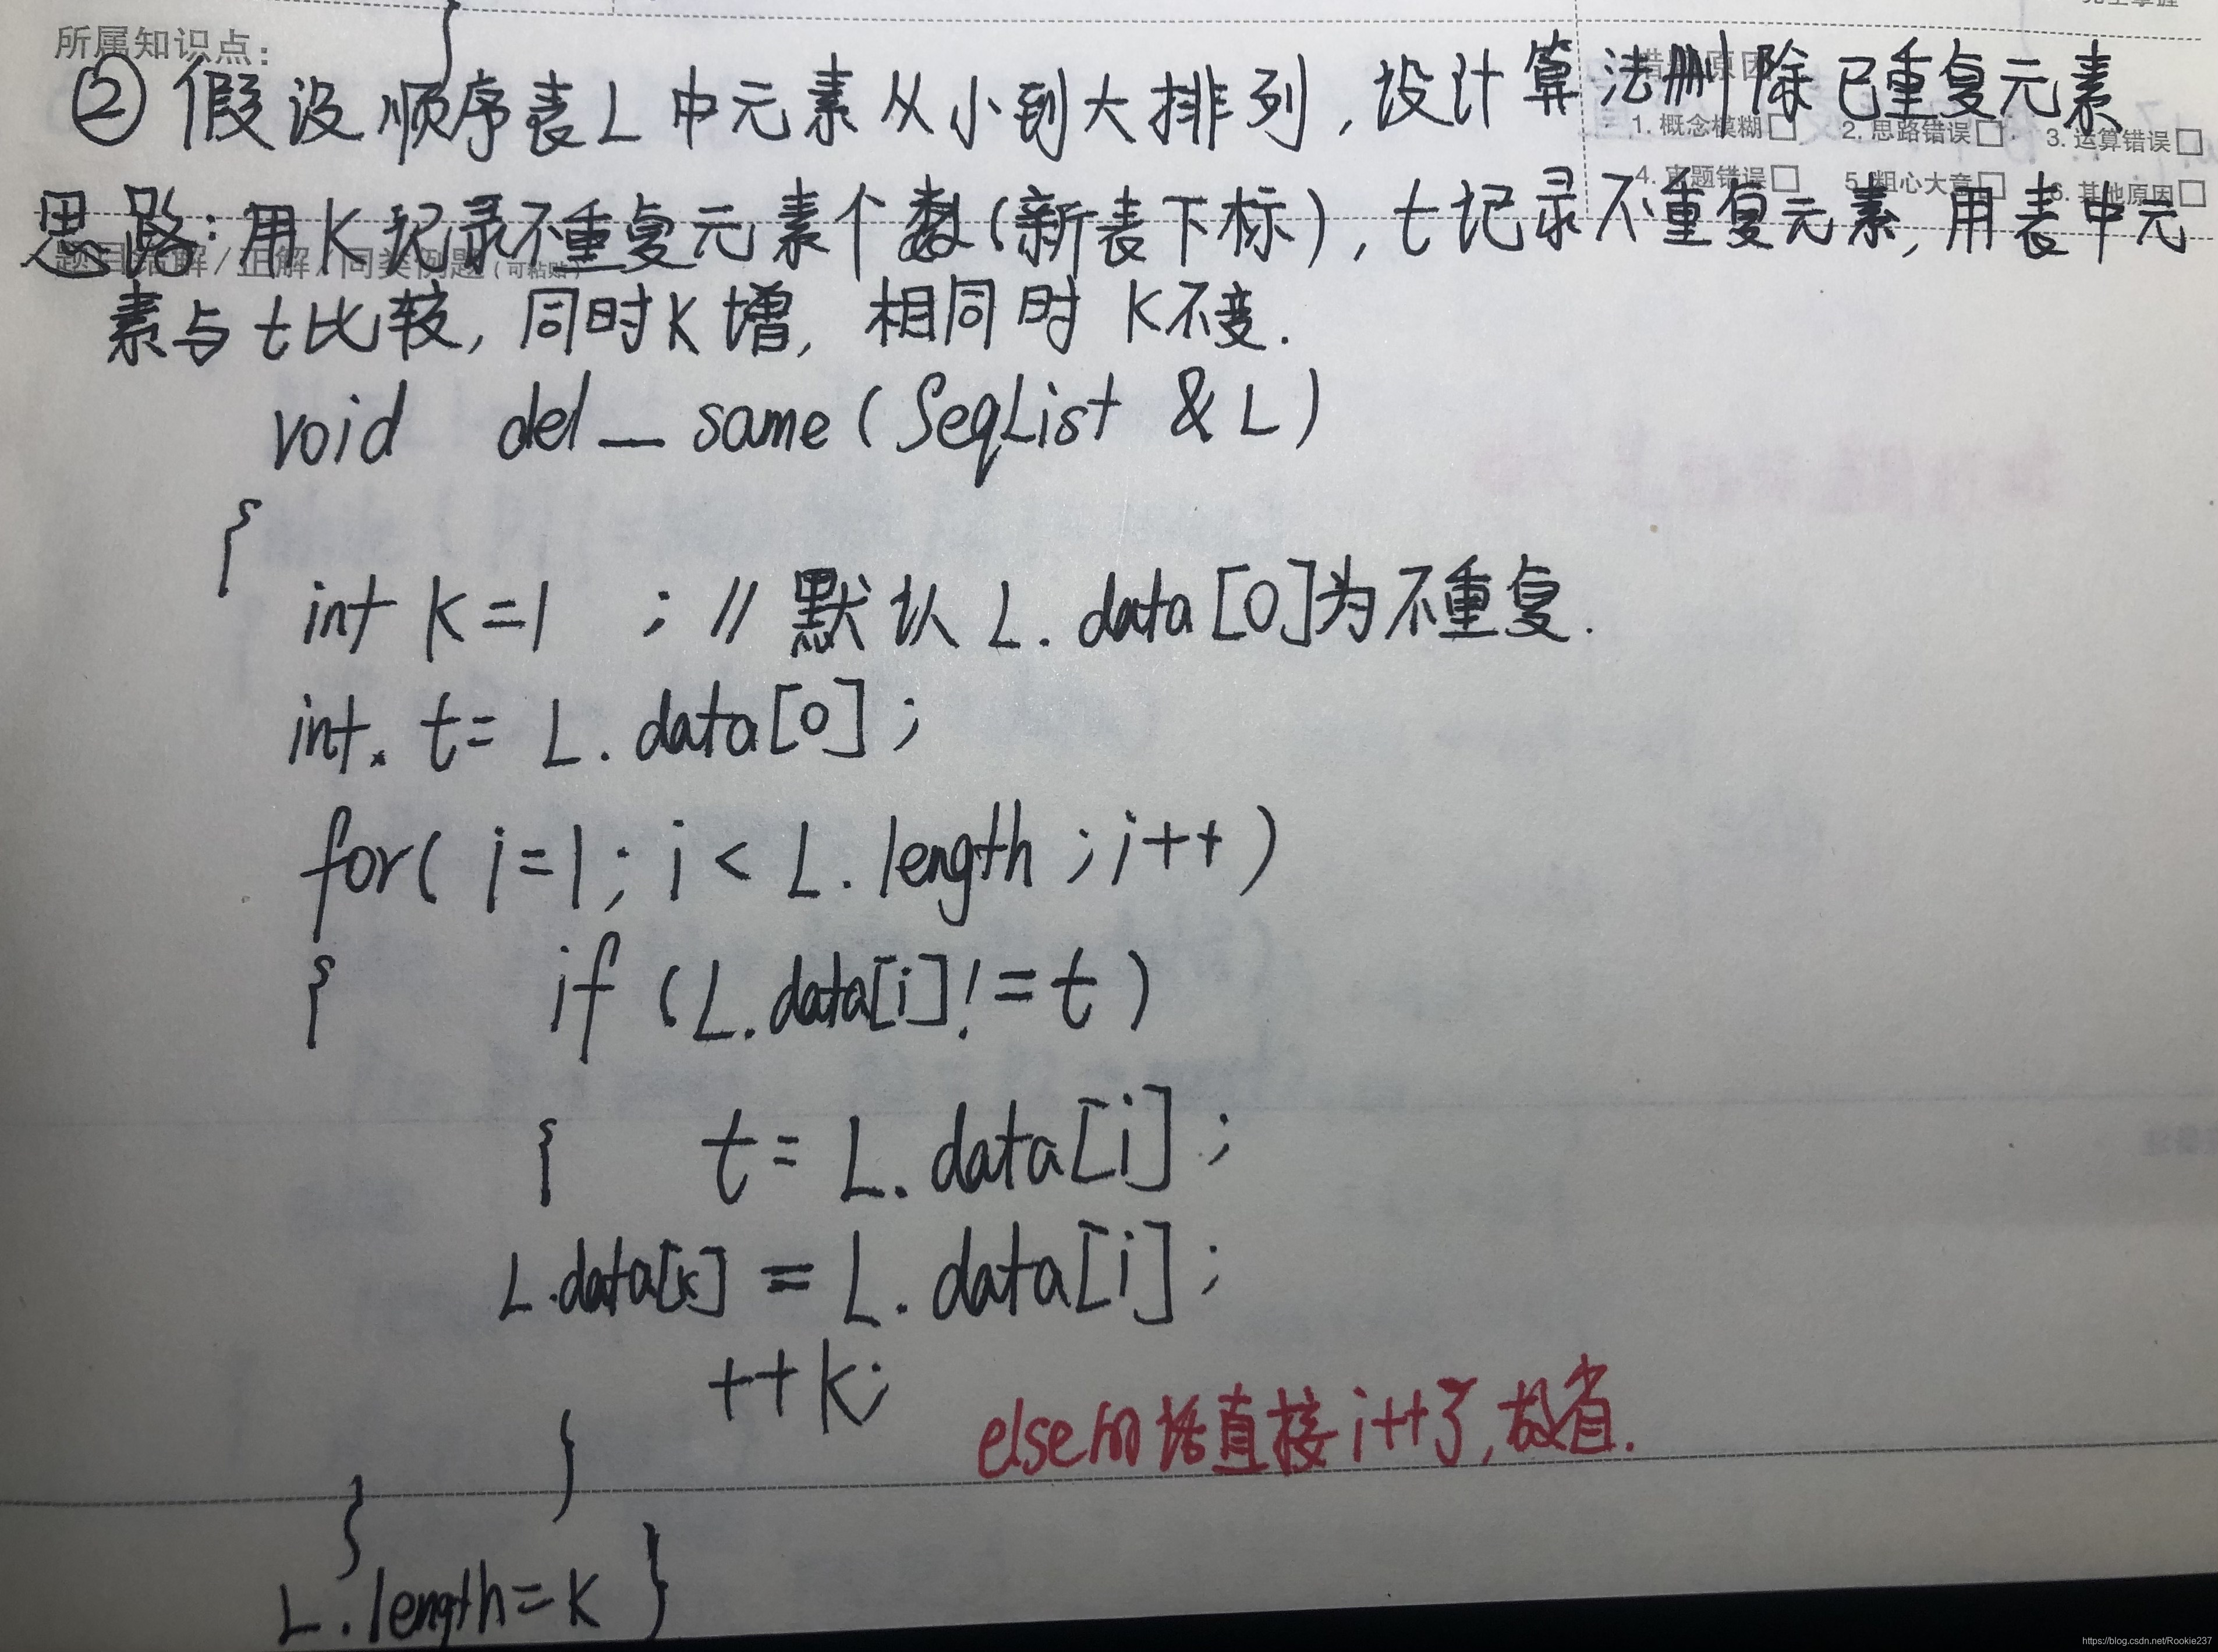 所属知识点:
② 假设顺序表L中元素从小到大排列,设计算法删除已重复元素
1. 概念模糊□ 2. 思路错误□ 3. 运算错误□
4. 审题错误□ 5. 粗心大意□ 6. 其他原因□
思路:用K记录不重复元素个数(新表下标),t记录不重复元素,用表中元
素与t比较,同时K增,相同时K不变.
void del_same(SeqList &L)
{
int k=1 ; // 默认L.data[0]为不重复.
int t= L.data[0];
for( i=1; i < L.length ; i++)
{ if (L.data[i]!=t)
{ t= L.data[i];
L.data[k] = L.data[i];
++k;
else的话直接i++了,故省.
}
}
L.length=k }
https://blog.csdn.net/Rookie237